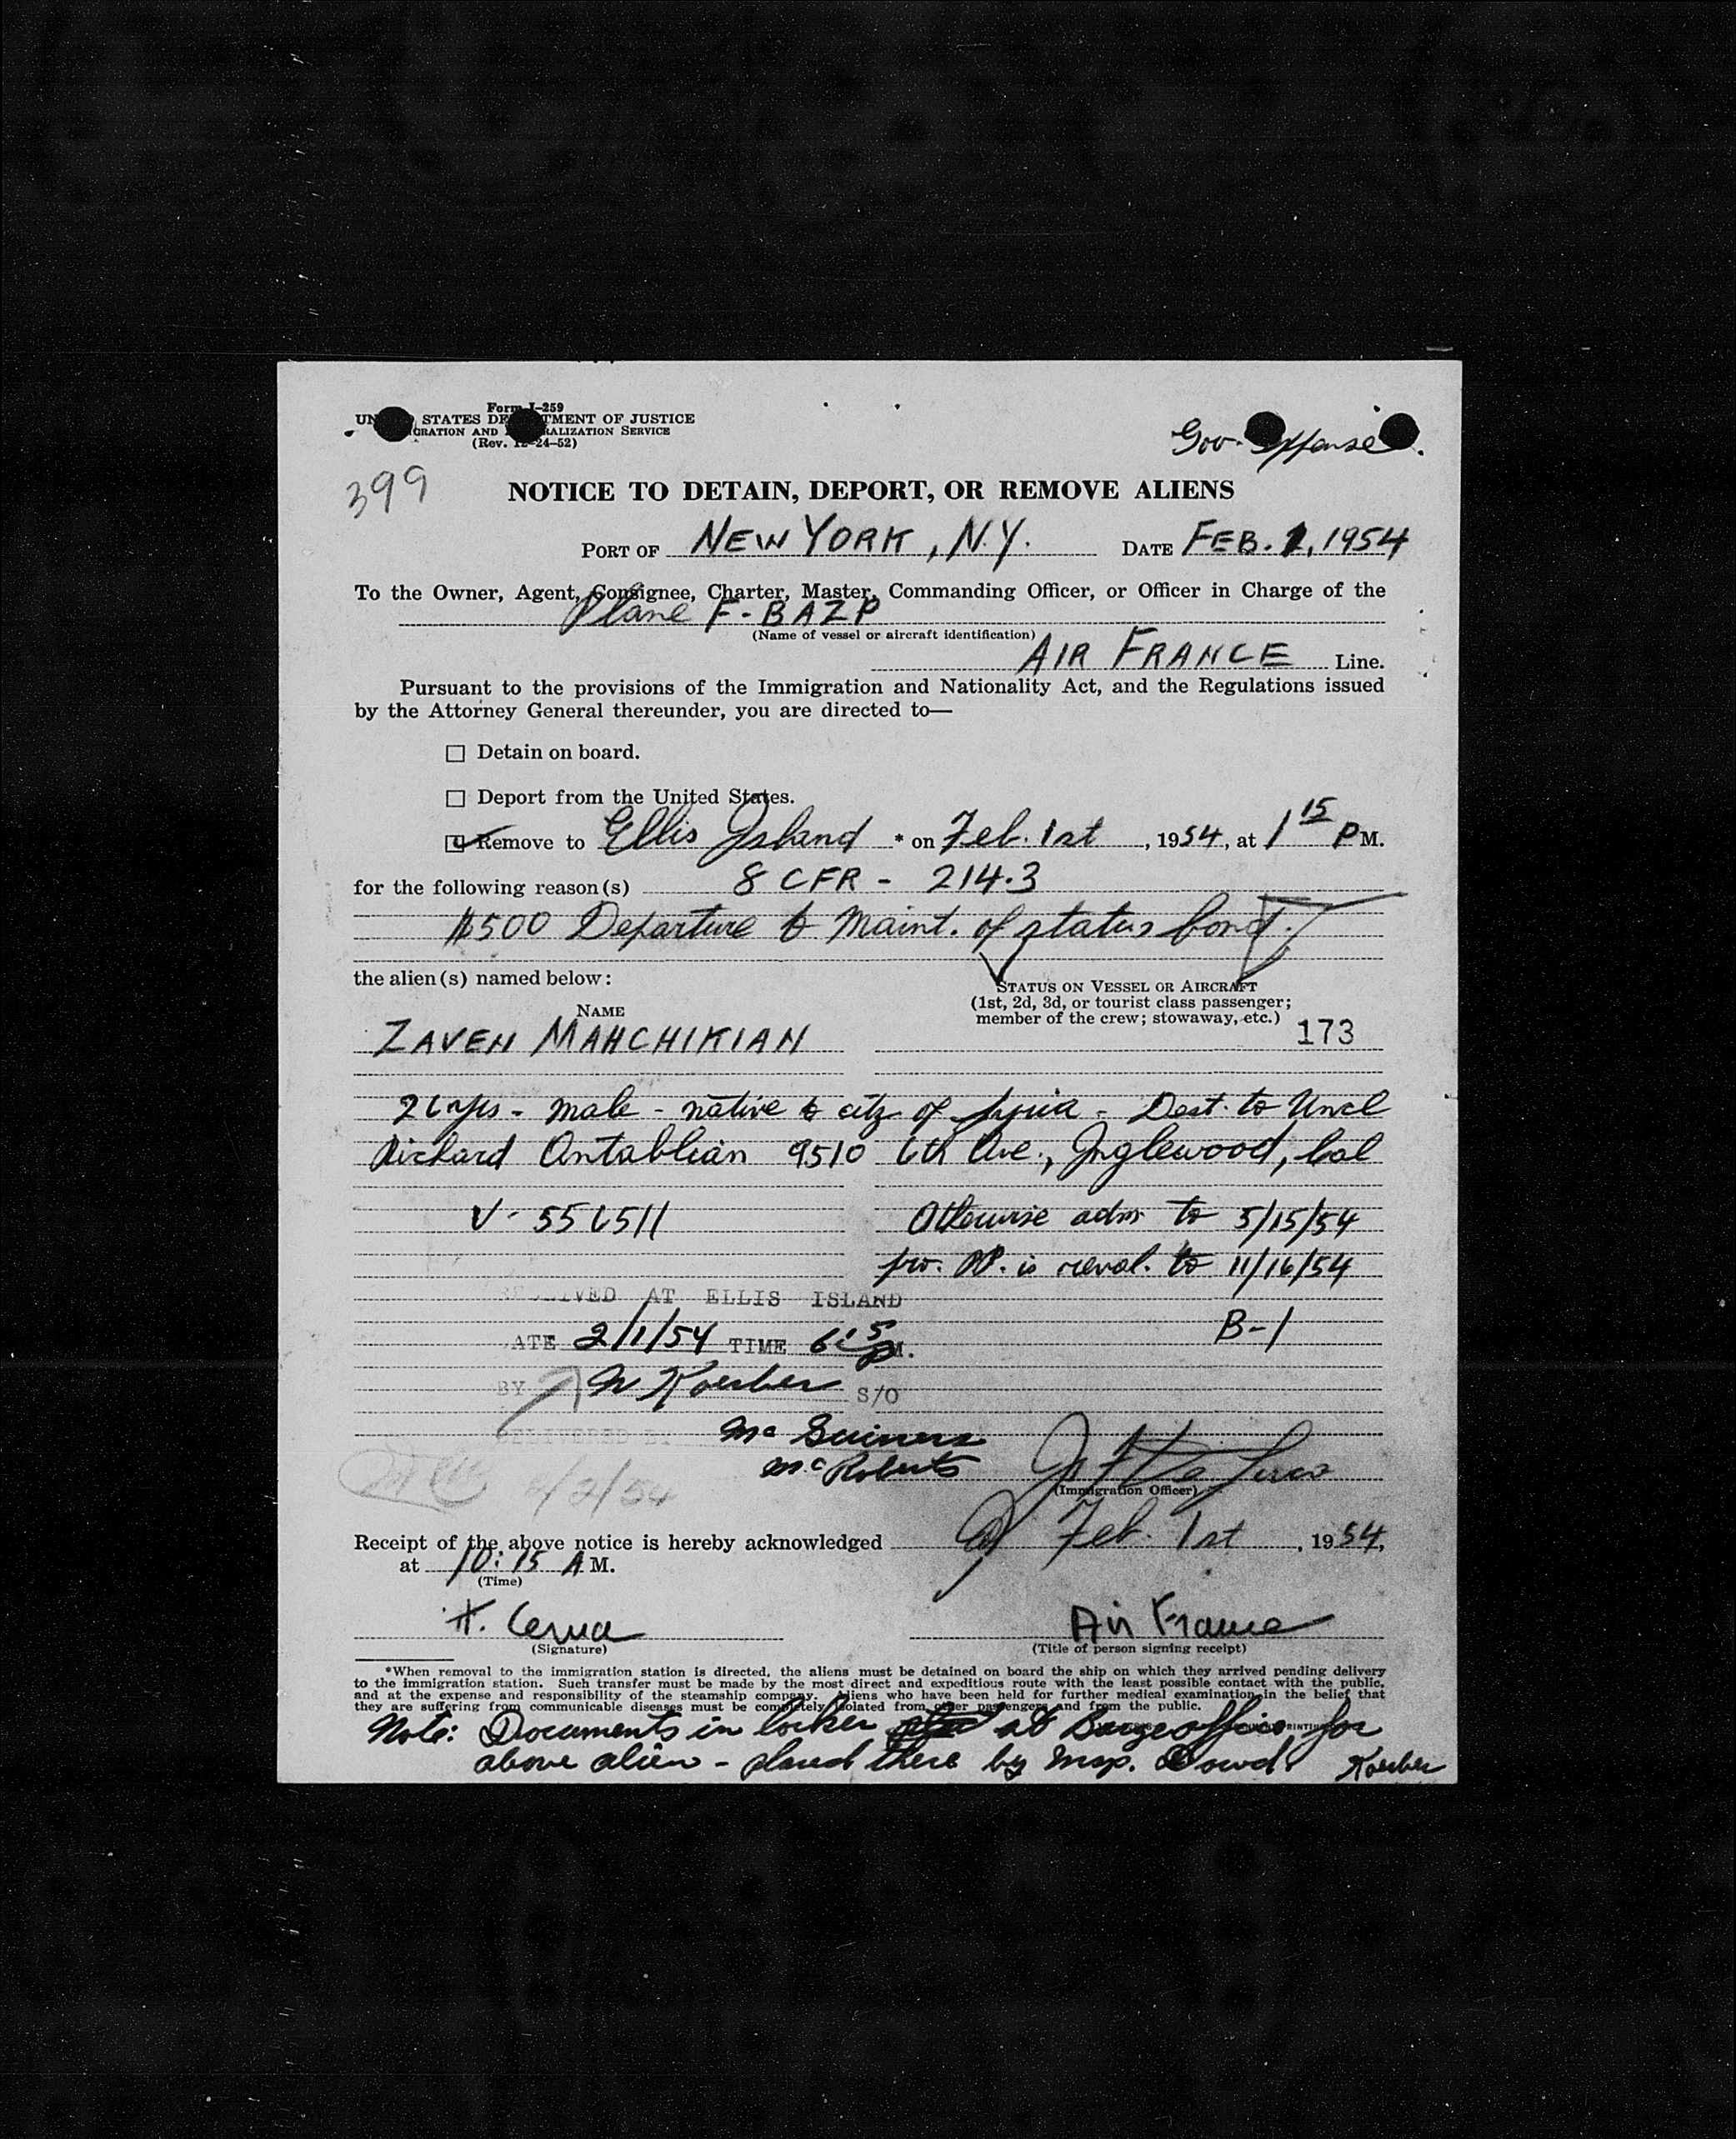 Form I-259
UN STATES DE TMENT OF JUSTICE
GRATION AND RALIZATION SERVICE
(Rev. 12-24-52)
Gov. Expense.
399
NOTICE TO DETAIN, DEPORT, OR REMOVE ALIENS
PORT OF NEW YORK, N.Y. DATE FEB. 1, 1954
To the Owner, Agent, Consignee, Charter, Master, Commanding Officer, or Officer in Charge of the
Plane F-BAZP
(Name of vessel or aircraft identification)
AIR FRANCE Line.
Pursuant to the provisions of the Immigration and Nationality Act, and the Regulations issued
by the Attorney General thereunder, you are directed to—
Detain on board.
Deport from the United States.
Remove to Ellis Island * on Feb. 1st, 1954, at 1 15 PM.
for the following reason(s) 8 CFR - 214.3
$500 Departure & Maint. of status bond.
the alien(s) named below:
STATUS ON VESSEL OR AIRCRAFT
(1st, 2d, 3d, or tourist class passenger;
member of the crew; stowaway, etc.)
NAME
ZAVEN MAHCHIKIAN 173
26 yrs - male - native & citz of Syria - Dest. to Uncl
Richard Antablian 9510 6th Ave., Inglewood, Cal
V-556511 Otherwise adm to 5/15/54
PP. is reval. to 11/16/54
RECEIVED AT ELLIS ISLAND
B-1
ATE 2/1/54 TIME 6:15 PM.
BY Koerber S/O
DELIVERED BY McGuiness
McRoberts
2/2/54
(Immigration Officer)
Receipt of the above notice is hereby acknowledged Feb. 1st, 1954,
at 10:15 A M.
(Time)
H. Cerna Air France
(Signature) (Title of person signing receipt)
*When removal to the immigration station is directed, the aliens must be detained on board the ship on which they arrived pending delivery
to the immigration station. Such transfer must be made by the most direct and expeditious route with the least possible contact with the public,
and at the expense and responsibility of the steamship company. Aliens who have been held for further medical examination in the belief that
they are suffering from communicable diseases must be completely isolated from other passengers and from the public.
Note: Documents in locker at Barge office, for
above alien - placed there by Insp. Dowd. Koerber